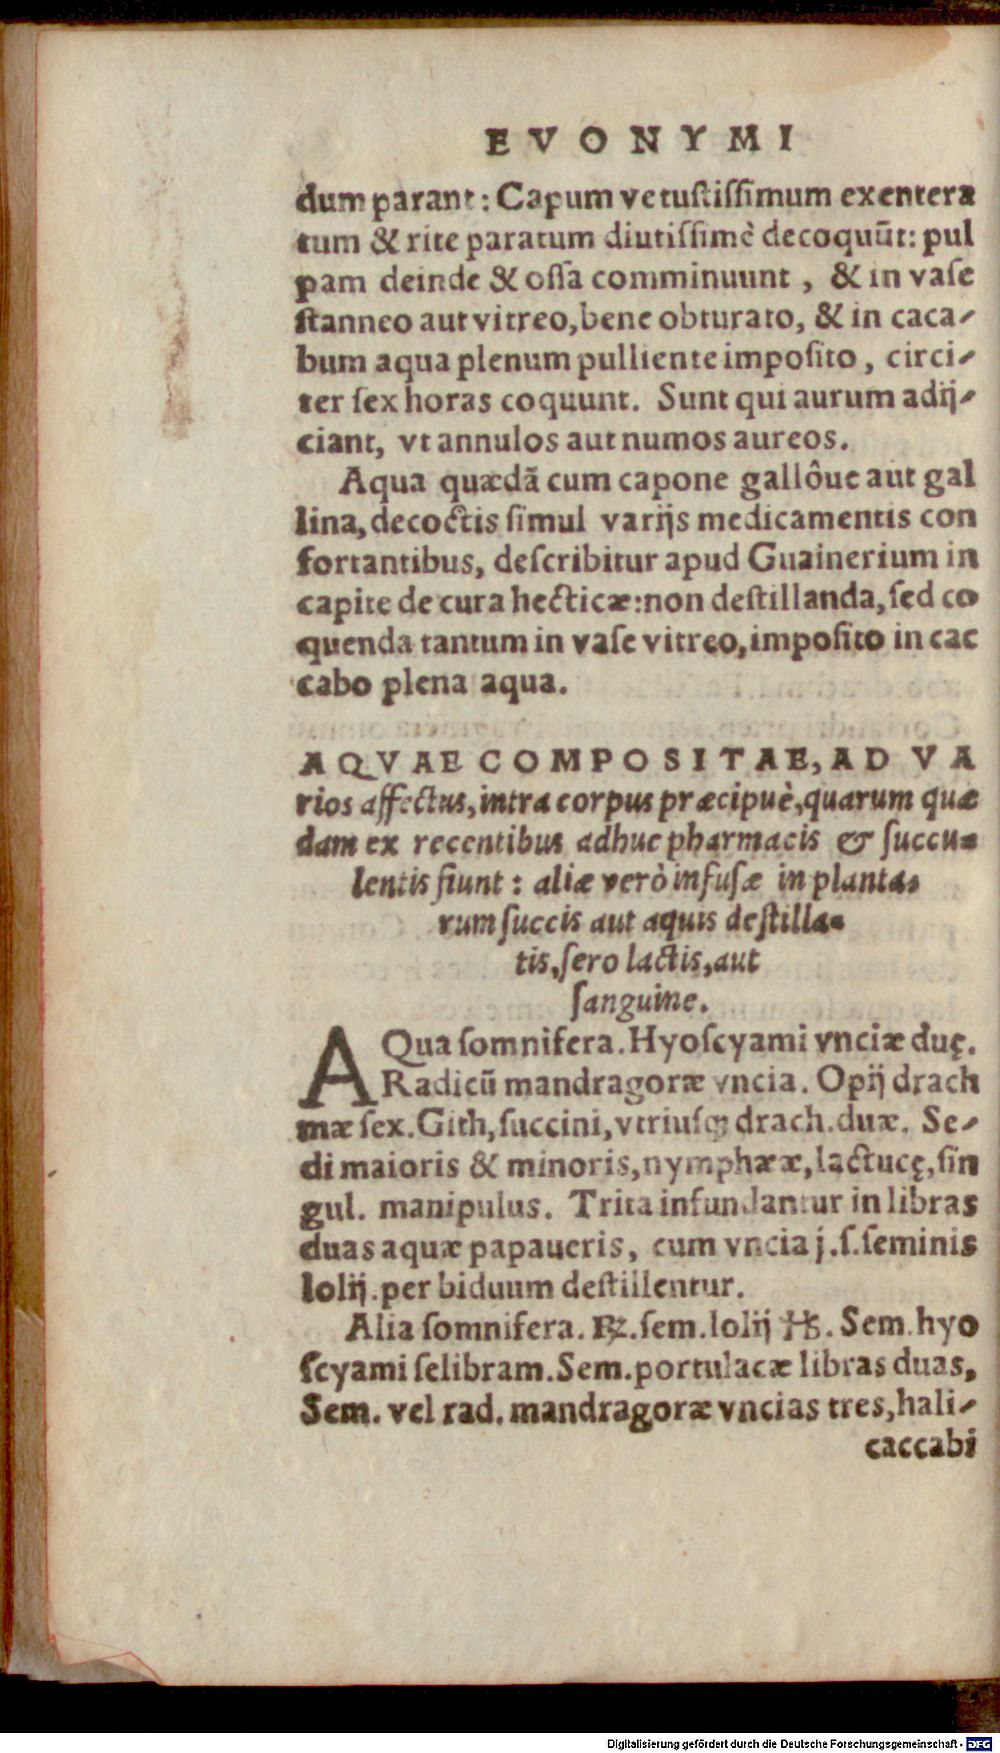 EVONYMI
dum parant: Capum vetustissimum exentera
tum & rite paratum diutissimè decoquũt: pul
pam deinde & ossa comminuunt, & in vase
stanneo aut vitreo, bene obturato, & in caca-
bum aqua plenum pulliente imposito, circi-
ter sex horas coquunt. Sunt qui aurum adij-
ciant, vt annulos aut numos aureos.
Aqua quædã cum capone gallôue aut gal
lina, decoctis simul varijs medicamentis con
fortantibus, describitur apud Guainerium in
capite de cura hecticæ: non destillanda, sed co
quenda tantum in vase vitreo, imposito in cac
cabo plena aqua.
AQVAE COMPOSITAE, AD VA
rios affectus, intra corpus præcipuè, quarum quæ
dam ex recentibus adhuc pharmacis & succu-
lentis fiunt: aliæ verò infusæ in planta-
rum succis aut aquis destilla-
tis, sero lactis, aut
sanguine.
AQua somnifera. Hyoscyami vnciæ duę.
Radicũ mandragoræ vncia. Opij drach
mæ sex. Gith, succini, vtriusq; drach. duæ. Se-
di maioris & minoris, nymphææ, lactucę, sin
gul. manipulus. Trita infundantur in libras
duas aquæ papaueris, cum vncia j.s. seminis
lolij. per biduum destillentur.
Alia somnifera. ℞. sem. lolij ℔. Sem. hyo
scyami selibram. Sem. portulacæ libras duas,
Sem. vel rad. mandragoræ vncias tres, hali-
caccabi
Digitalisierung gefördert durch die Deutsche Forschungsgemeinschaft - DFG